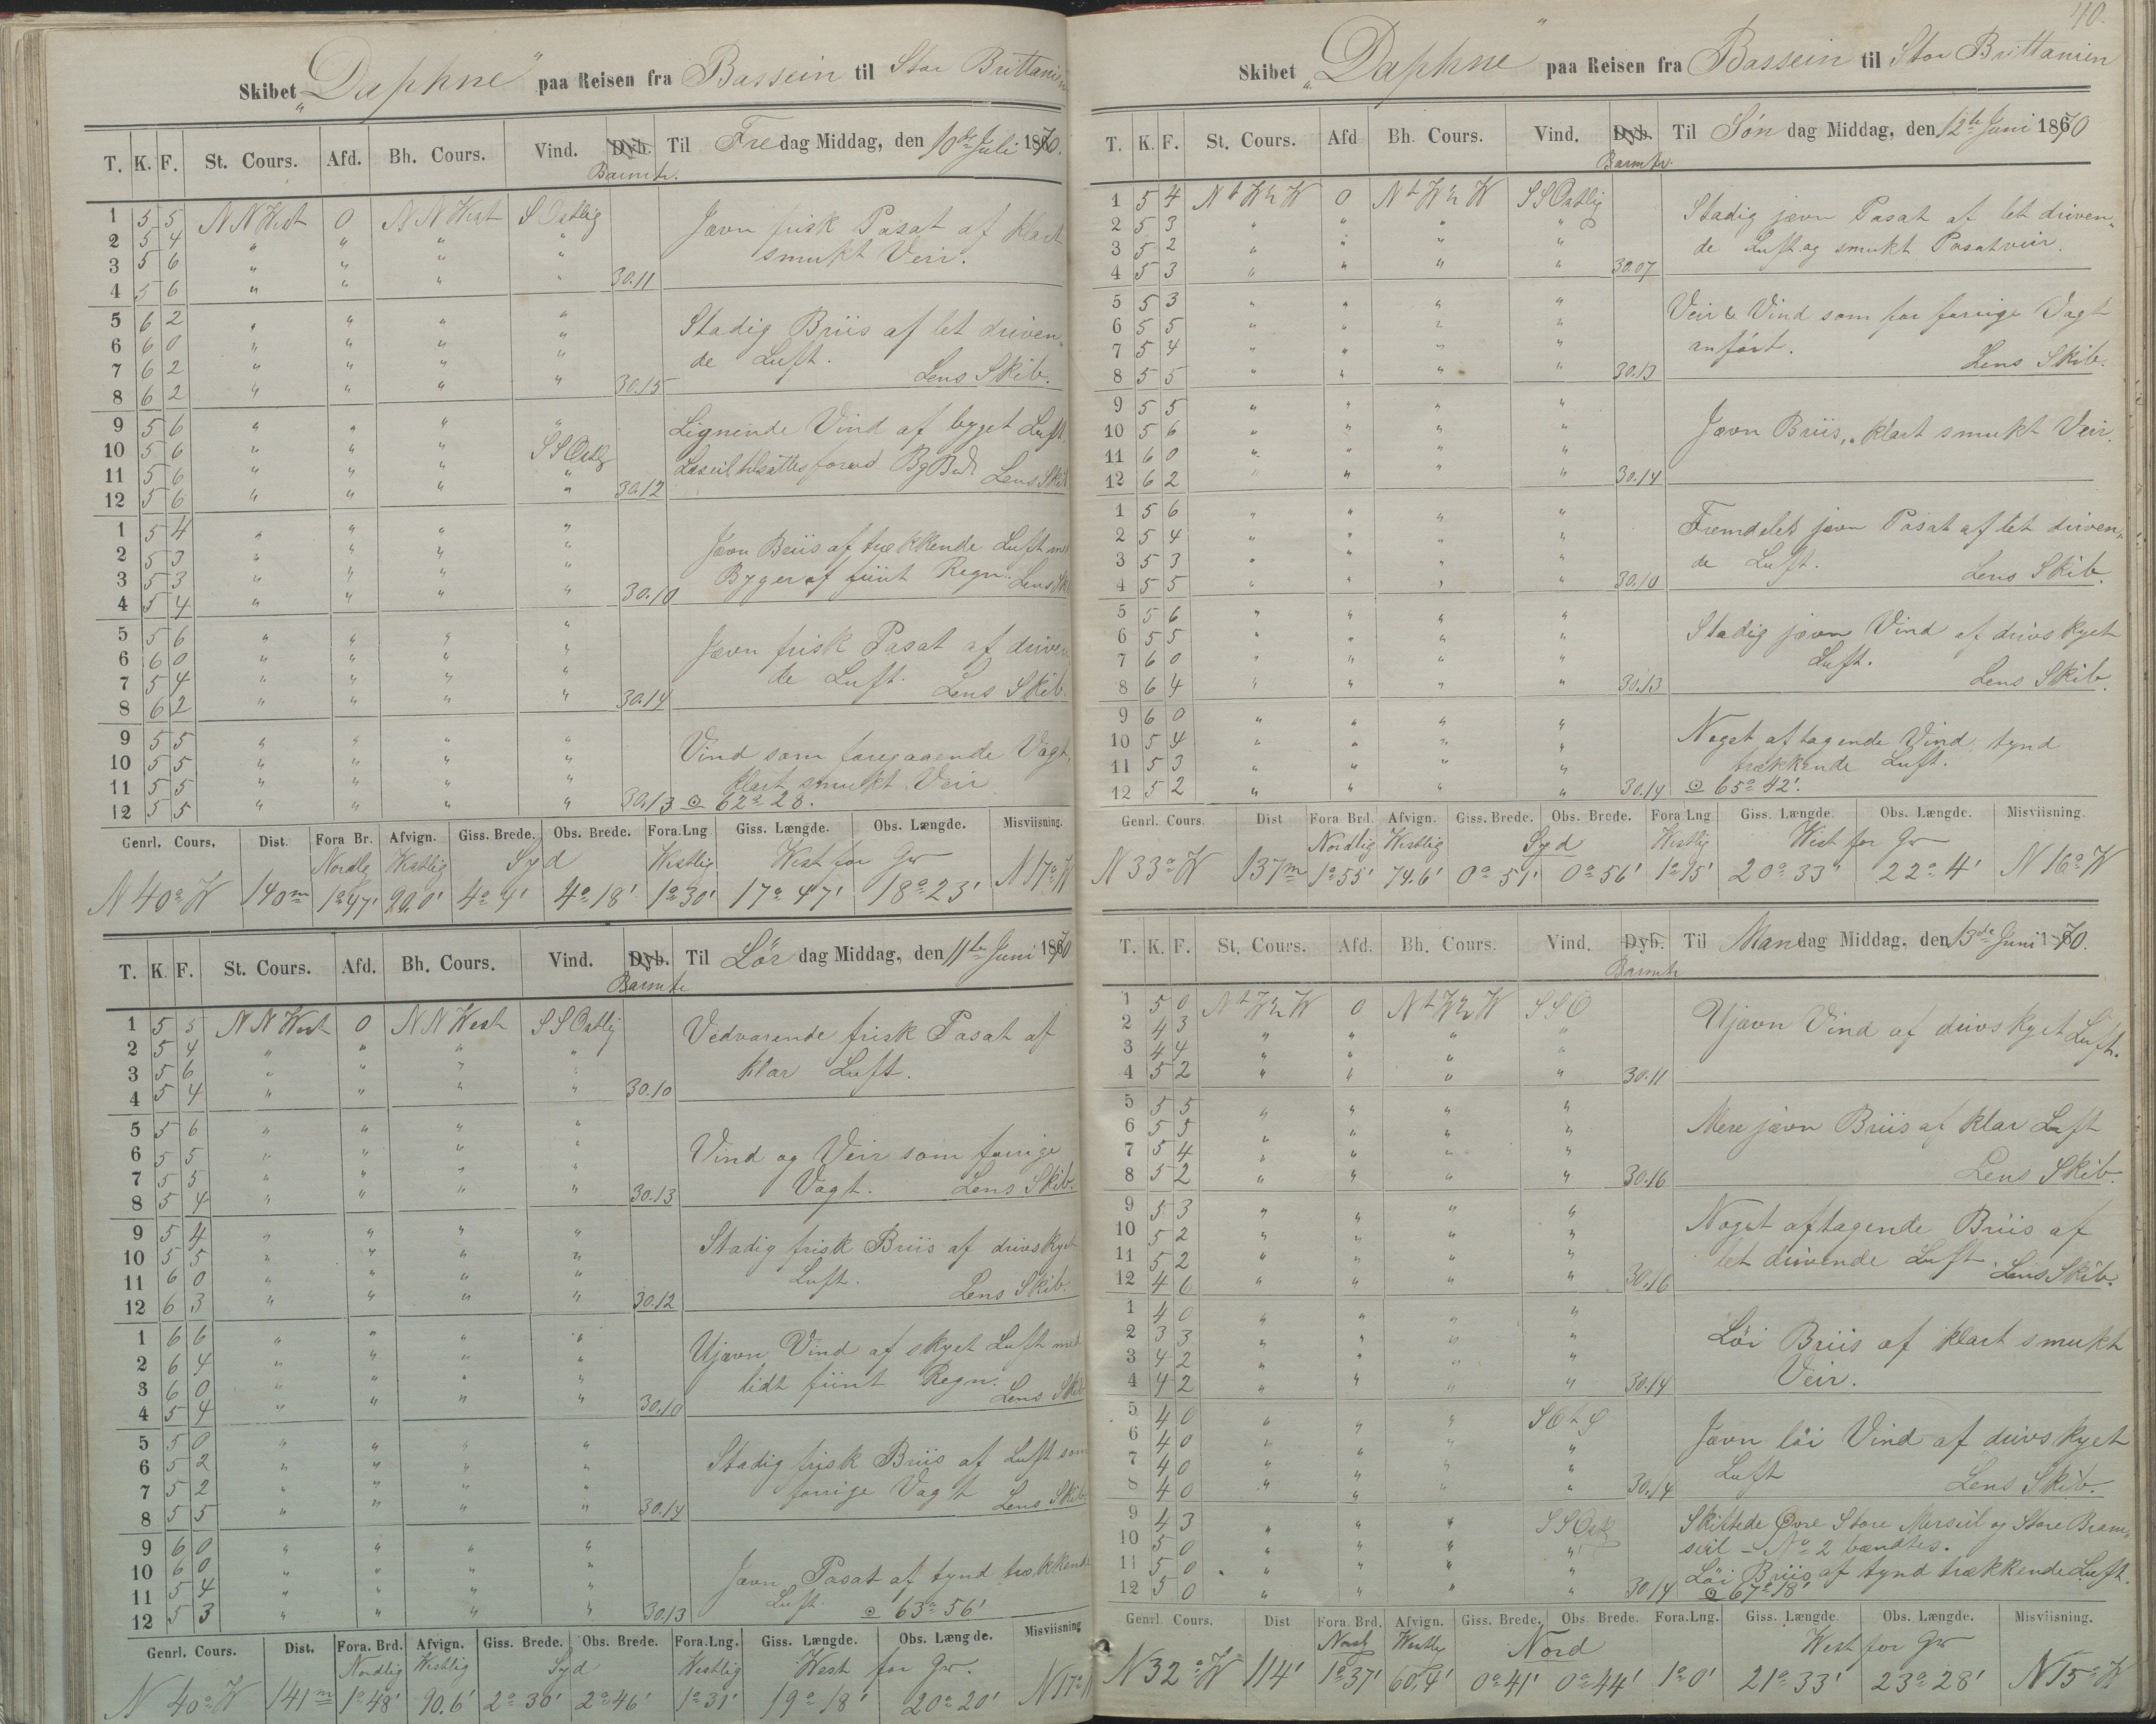 Skibet „Daphne“ paa Reisen fra Bassein til Stor Brittanien
T. K. F. St. Cours. Afd. Bh. Cours. Vind. Dyb. Barmtr. Til Fredag Middag, den 10de Juli 1870.
1 5 5 NNWest 0 NNWest SOstlig Jævn frisk Pasat af klart
2 5 4 " " " " smukt Veir.
3 5 6 " " " "
4 5 6 " " " " 30.11
5 6 2 " " " " Stadig Briis af let driven-
6 6 0 " " " " de Luft.
7 6 2 " " " " Lens Skib.
8 6 2 " " " " 30.15
9 5 6 " " " " Lignende Vind af byget Luft
10 5 6 " " " SSOstlig
11 5 6 " " " " Læseil tilsattes forud Lens Skib
12 5 6 " " " " 30.12
1 5 4 " " " " Jævn Briis af trækkende Luft med
2 5 3 " " " " Byger af fiint Regn. Lens Sk
3 5 3 " " " "
4 5 4 " " " " 30.10
5 5 6 " " " " Jævn frisk Pasat af driven
6 6 0 " " " " de Luft. Lens Skib.
7 5 4 " " " "
8 6 2 " " " " 30.14
9 5 5 " " " " Vind som foregaaende Vagt,
10 5 5 " " " " klart smukt Veir
11 5 5 " " " "
12 5 5 " " " " 30.13 ⊙ 62° 28.
Genrl. Cours. Dist. Fora Br. Afvign. Giss. Brede. Obs. Brede. Fora.Lng Giss. Længde. Obs. Længde. Misviisning.
Nordlg Westlig Syd Westlig West for Gw
N 40° W 140m 1°47' 90,0' 4° 4' 4° 18' 1° 30' 17° 47' 18° 23' N 17° W
T. K. F. St. Cours. Afd. Bh. Cours. Vind. Dyb. Barmtr Til Lørdag Middag, den 11te Juni 1870
1 5 5 NNWest 0 NNWest SSOstlig Vedvarende frisk Pasat af
2 5 4 " " " " klar Luft.
3 5 6 " " " "
4 5 4 " " " " 30.10
5 5 6 " " " " Vind og Veir som forrige
6 5 5 " " " " Vagt. Lens Skib.
7 5 5 " " " "
8 5 4 " " " " 30.13
9 5 4 " " " " Stadig frisk Briis af drivskyet
10 5 5 " " " " Luft.
11 6 0 " " " " Lens Skib.
12 6 3 " " " " 30.12
1 6 6 " " " " Ujævn Vind af skyet Luft med
2 6 4 " " " " lidt fiint Regn.
3 6 0 " " " " Lens Skib
4 5 4 " " " " 30.10
5 5 0 " " " " Stadig frisk Briis af Luft som
6 5 2 " " " " forrige Vagt Lens Skib.
7 5 2 " " " "
8 5 5 " " " " 30.14
9 6 0 " " " " Jævn Pasat af tynd trækkende
10 6 0 " " " " Luft. ⊙ 63° 56'
11 5 4 " " " "
12 5 3 " " " " 30.13
Genrl. Cours. Dist. Fora. Brd. Afvign. Giss. Brede. Obs. Brede. Fora.Lng. Giss. Længde. Obs. Længde. Misviisning
Nordlig Westlig Syd Westlig West for Gw.
N 40° W 141m 1° 48' 90.6' 2° 30' 2° 46' 1° 31' 19° 18' 20° 20' N 17° W
40.
Skibet „Daphne“ paa Reisen fra Bassein til Stor Brittanien
T. K. F. St. Cours. Afd Bh. Cours. Vind. Dyb. Barmtr. Til Søndag Middag, den 12te Juni 1870
1 5 4 NtW½W 0 NtW½W SSOstlig Stadig jævn Pasat af let driven-
2 5 3 " " " " de Luft og smukt Pasatveir.
3 5 2 " " " "
4 5 3 " " " " 30.07
5 5 3 " " " " Veir & Vind som for forrige Vagt
6 5 5 " " " " anført.
7 5 4 " " " " Lens Skib.
8 5 5 " " " " 30.13
9 5 5 " " " " Jævn Briis, klart smukt Veir.
10 5 6 " " " "
11 6 0 " " " "
12 6 2 " " " " 30.14
1 5 6 " " " " Fremdeles jævn Pasat af let driven-
2 5 4 " " " " de Luft.
3 5 3 " " " " Lens Skib.
4 5 5 " " " " 30.10
5 5 6 " " " " Stadig jævn Vind af drivskyet
6 5 5 " " " " Luft.
7 6 0 " " " " Lens Skib.
8 6 4 " " " " 30.13
9 6 0 " " " " Noget aftagende Vind, tynd
10 5 4 " " " " trækkende Luft.
11 5 3 " " " "
12 5 2 " " " " 30.14 ⊙ 65° 42'.
Genrl. Cours. Dist Fora Brd. Afvign. Giss. Brede. Obs. Brede. Fora Lng Giss. Længde. Obs. Længde. Misviisning
Nordlig Westlig Syd Westlig West for Gw
N 33° W 137m 1° 55' 74.6' 0° 51' 0° 56' 1° 15' 20° 33' 22° 4' N 16° W
T. K. F. St. Cours. Afd. Bh. Cours. Vind. Dyb. Barmtr Til Mandag Middag, den 13de Juni 1870.
1 5 0 NtW½W 0 NtW½W SSO Ujævn Vind af drivskyet Luft.
2 4 3 " " " "
3 4 4 " " " "
4 5 2 " " " " 30.11
5 5 5 " " " " Mere jævn Briis af klar Luft
6 5 5 " " " "
7 5 4 " " " " Lens Skib.
8 5 2 " " " " 30.16
9 5 3 " " " " Noget aftagende Briis af
10 5 2 " " " " let drivende Luft. Lens Skib.
11 5 2 " " " "
12 4 6 " " " " 30.16
1 4 0 " " " " Løi Briis af klart smukt
2 3 3 " " " " Veir.
3 4 2 " " " "
4 4 2 " " " " 30.14
5 4 0 " " " SOtS Jævn løi Vind af drivskyet
6 4 0 " " " " Luft
7 4 0 " " " " Lens Skib.
8 4 0 " " " " 30.14
9 4 3 " " " SSOst Skiftede Øvre Store Merseil og Store Bram-
10 5 0 " " " " seil – No 2 bændtes.
11 5 0 " " " " Løi Briis af tynd trækkende Luft.
12 5 0 " " " " 30.14 ⊙ 67° 18'
Genrl. Cours. Dist Fora. Brd. Afvign. Giss. Brede. Obs. Brede. Fora.Lng. Giss. Længde. Obs. Længde. Misviisning.
Nordlg Westlig Nord West for Gw
N 32° W 114' 1° 37' 60,4' 0° 41' 0° 44' 1° 0' 21° 33' 23° 28' N 15° W